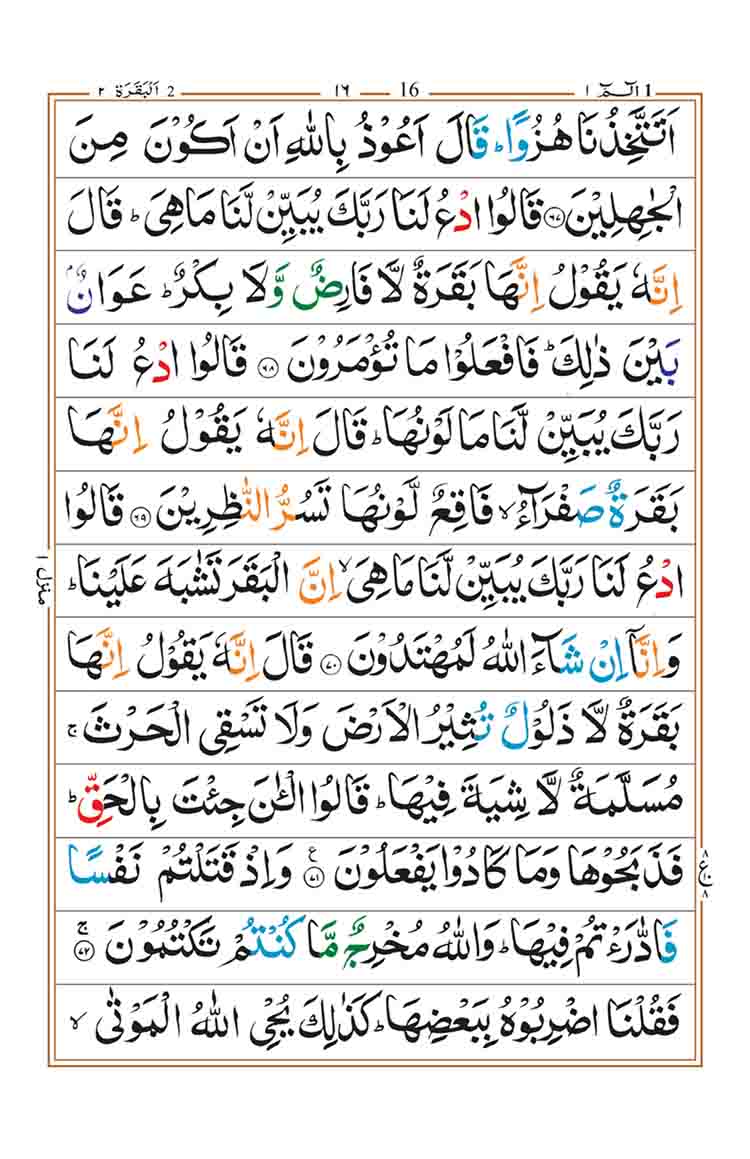 1 الٓـمّٓ ١ 16 ١٦ 2 اَلْبَقَرَة ٢
اَتَتَّخِذُنَا هُزُوًا ؕ قَالَ اَعُوْذُ بِاللّٰهِ اَنْ اَكُوْنَ مِنَ
الْجٰهِلِيْنَ ﴿۶۷﴾ قَالُوا ادْعُ لَنَا رَبَّكَ يُبَيِّنْ لَّنَا مَا هِىَ ؕ قَالَ
اِنَّهٗ يَقُوْلُ اِنَّهَا بَقَرَةٌ لَّا فَارِضٌ وَّلَا بِكْرٌ ؕ عَوَانٌۢ
بَيْنَ ذٰلِكَ ؕ فَافْعَلُوْا مَا تُؤْمَرُوْنَ ﴿۶۸﴾ قَالُوا ادْعُ لَنَا
رَبَّكَ يُبَيِّنْ لَّنَا مَا لَوْنُهَا ؕ قَالَ اِنَّهٗ يَقُوْلُ اِنَّهَا
بَقَرَةٌ صَفْرَآءُ ۙ فَاقِعٌ لَّوْنُهَا تَسُرُّ النّٰظِرِيْنَ ﴿۶۹﴾ قَالُوا
ادْعُ لَنَا رَبَّكَ يُبَيِّنْ لَّنَا مَا هِىَ ۙ اِنَّ الْبَقَرَ تَشٰبَهَ عَلَيْنَا ؕ
وَاِنَّاۤ اِنْ شَآءَ اللّٰهُ لَمُهْتَدُوْنَ ﴿۷۰﴾ قَالَ اِنَّهٗ يَقُوْلُ اِنَّهَا
بَقَرَةٌ لَّا ذَلُوْلٌ تُثِيْرُ الْاَرْضَ وَلَا تَسْقِى الْحَرْثَ ۚ
مُسَلَّمَةٌ لَّا شِيَةَ فِيْهَا ؕ قَالُوا الْـٰٔنَ جِئْتَ بِالْحَقِّ ؕ
فَذَبَحُوْهَا وَمَا كَادُوْا يَفْعَلُوْنَ ﴿۷۱﴾ ع وَاِذْ قَتَلْتُمْ نَفْسًا
فَادّٰرَءْتُمْ فِيْهَا ؕ وَاللّٰهُ مُخْرِجٌ مَّا كُنْتُمْ تَكْتُمُوْنَ ﴿۷۲﴾ ۚ
فَقُلْنَا اضْرِبُوْهُ بِبَعْضِهَا ؕ كَذٰلِكَ يُحْىِ اللّٰهُ الْمَوْتٰى ۙ
منزل ١
٨ ع ٨